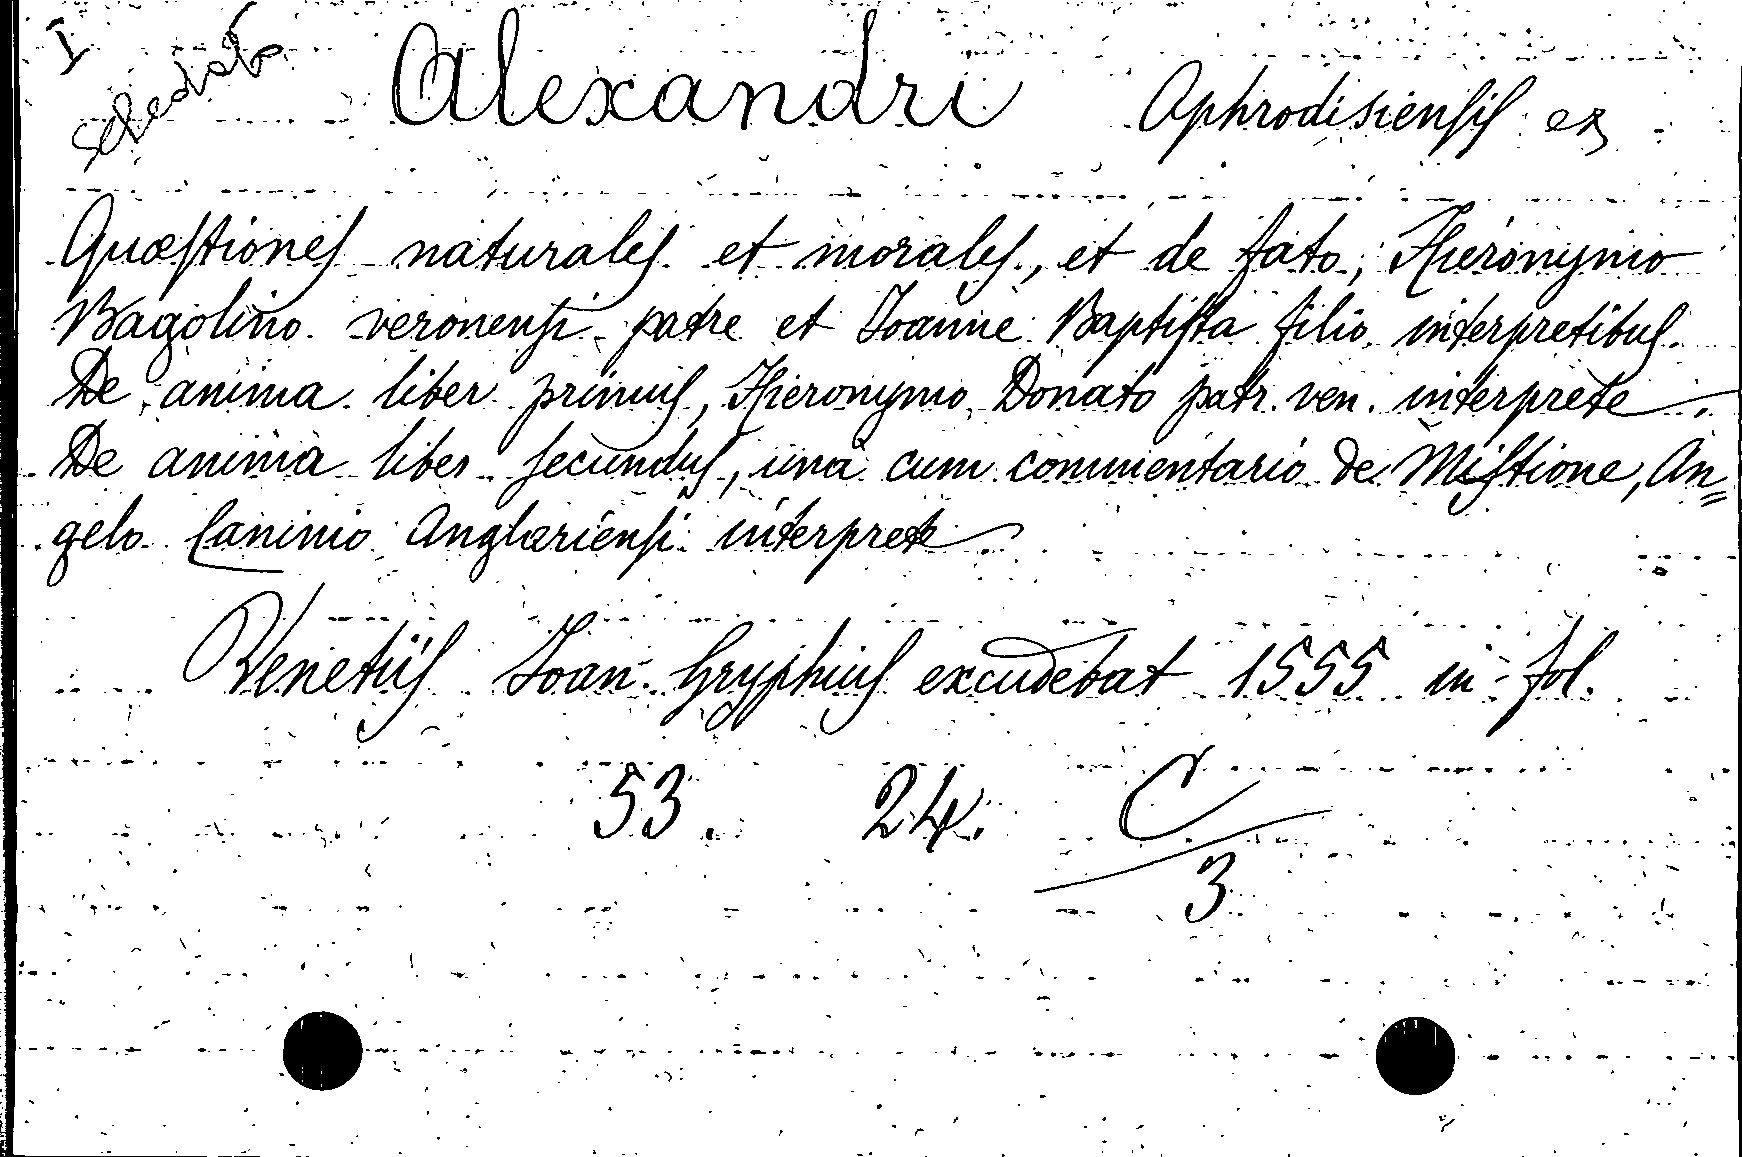 I
Schedato
Alexandri Aphrodisiensis ex
Quæstiones naturales et morales, et de fato, Hieronymo
Bagolino veronensi patre et Joanne Baptista filio interpretibus.
De anima liber primus, Hieronymo Donato patr. ven. interprete.
De anima liber secundus, una cum commentario de Mistione, An=
gelo Caninio Anglariensi interprete
Venetiis Joan. Gryphius excudebat 1555 in-fol.
53. 24. C
3